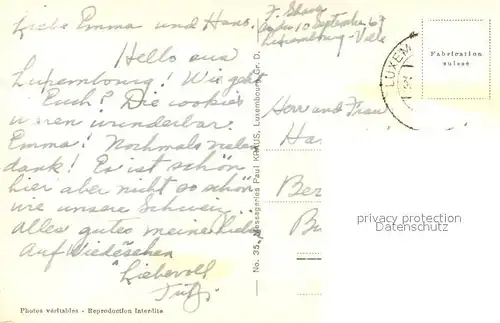 Liebe Emma und Hans,
Hello aus
Luxembourg! Wie geht
Euch? Die cookies
waren wunderbar
Emma! Nochmals vielen
dank! Es ist schön
hier aber nicht so schön
wie unsere Schweiz.
Alles gutes meine Lieben
Auf Wiedesehen
Liebevoll
10 September 67
Luxembourg - Ville
LUXEM
Fabrication
suisse
Herr und Frau
Ha
Ber
No. 35 Messageries Paul KRAUS, Luxembourg, Gr. D.
privacy protection
Datenschutz
Photos véritables - Reproduction Interdite